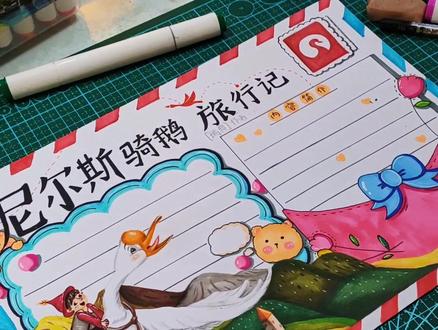 尼尔斯骑鹅旅行记
内容简介